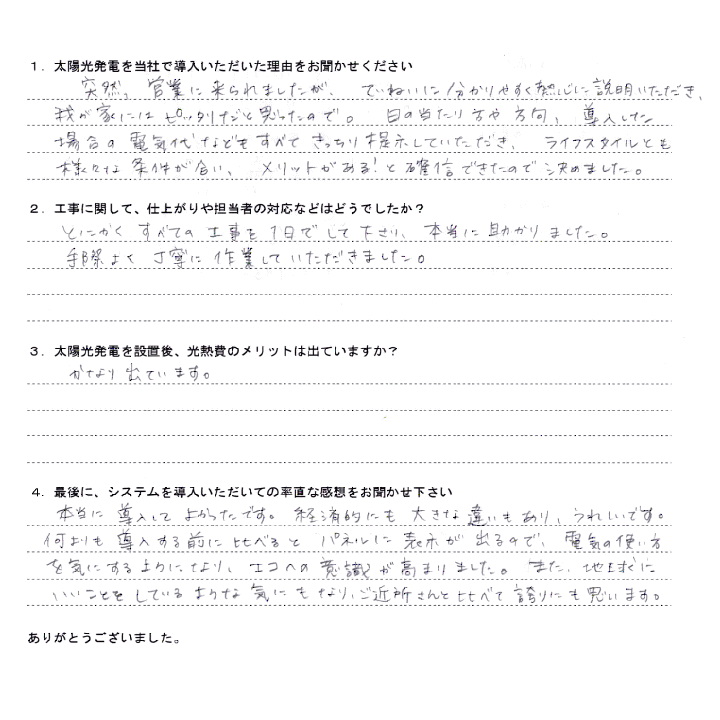 １．太陽光発電を当社で導入いただいた理由をお聞かせください
突然、営業に来られましたが、ていねいに分かりやすく熱心に説明いただき、
我が家にはピッタリだと思ったので。日の当たり方や方向、導入した
場合の電気代などもすべてきっちり提示していただき、ライフスタイルとも
様々な条件が合い、メリットがある！と確信できたので決めました。
２．工事に関して、仕上がりや担当者の対応などはどうでしたか？
とにかくすべての工事を1日でして下さり、本当に助かりました。
手際よく丁寧に作業していただきました。
３．太陽光発電を設置後、光熱費のメリットは出ていますか？
かなり出ています。
４．最後に、システムを導入いただいての率直な感想をお聞かせ下さい
本当に導入してよかったです。経済的にも大きな違いもあり、うれしいです。
何よりも導入する前に比べるとパネルに表示が出るので、電気の使い方
を気にするようになり、エコへの意識が高まりました。また、地球に
いいことをしているような気にもなり、ご近所さんと比べて誇りにも思います。
ありがとうございました。